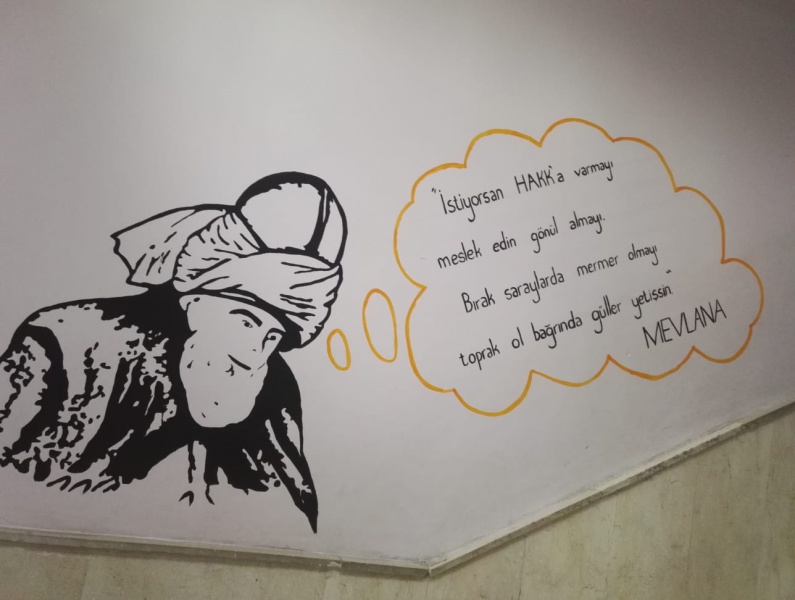 "İstiyorsan HAKK'a varmayı
meslek edin gönül almayı.
Bırak saraylarda mermer olmayı
toprak ol bağrında güller yetişsin."
MEVLANA